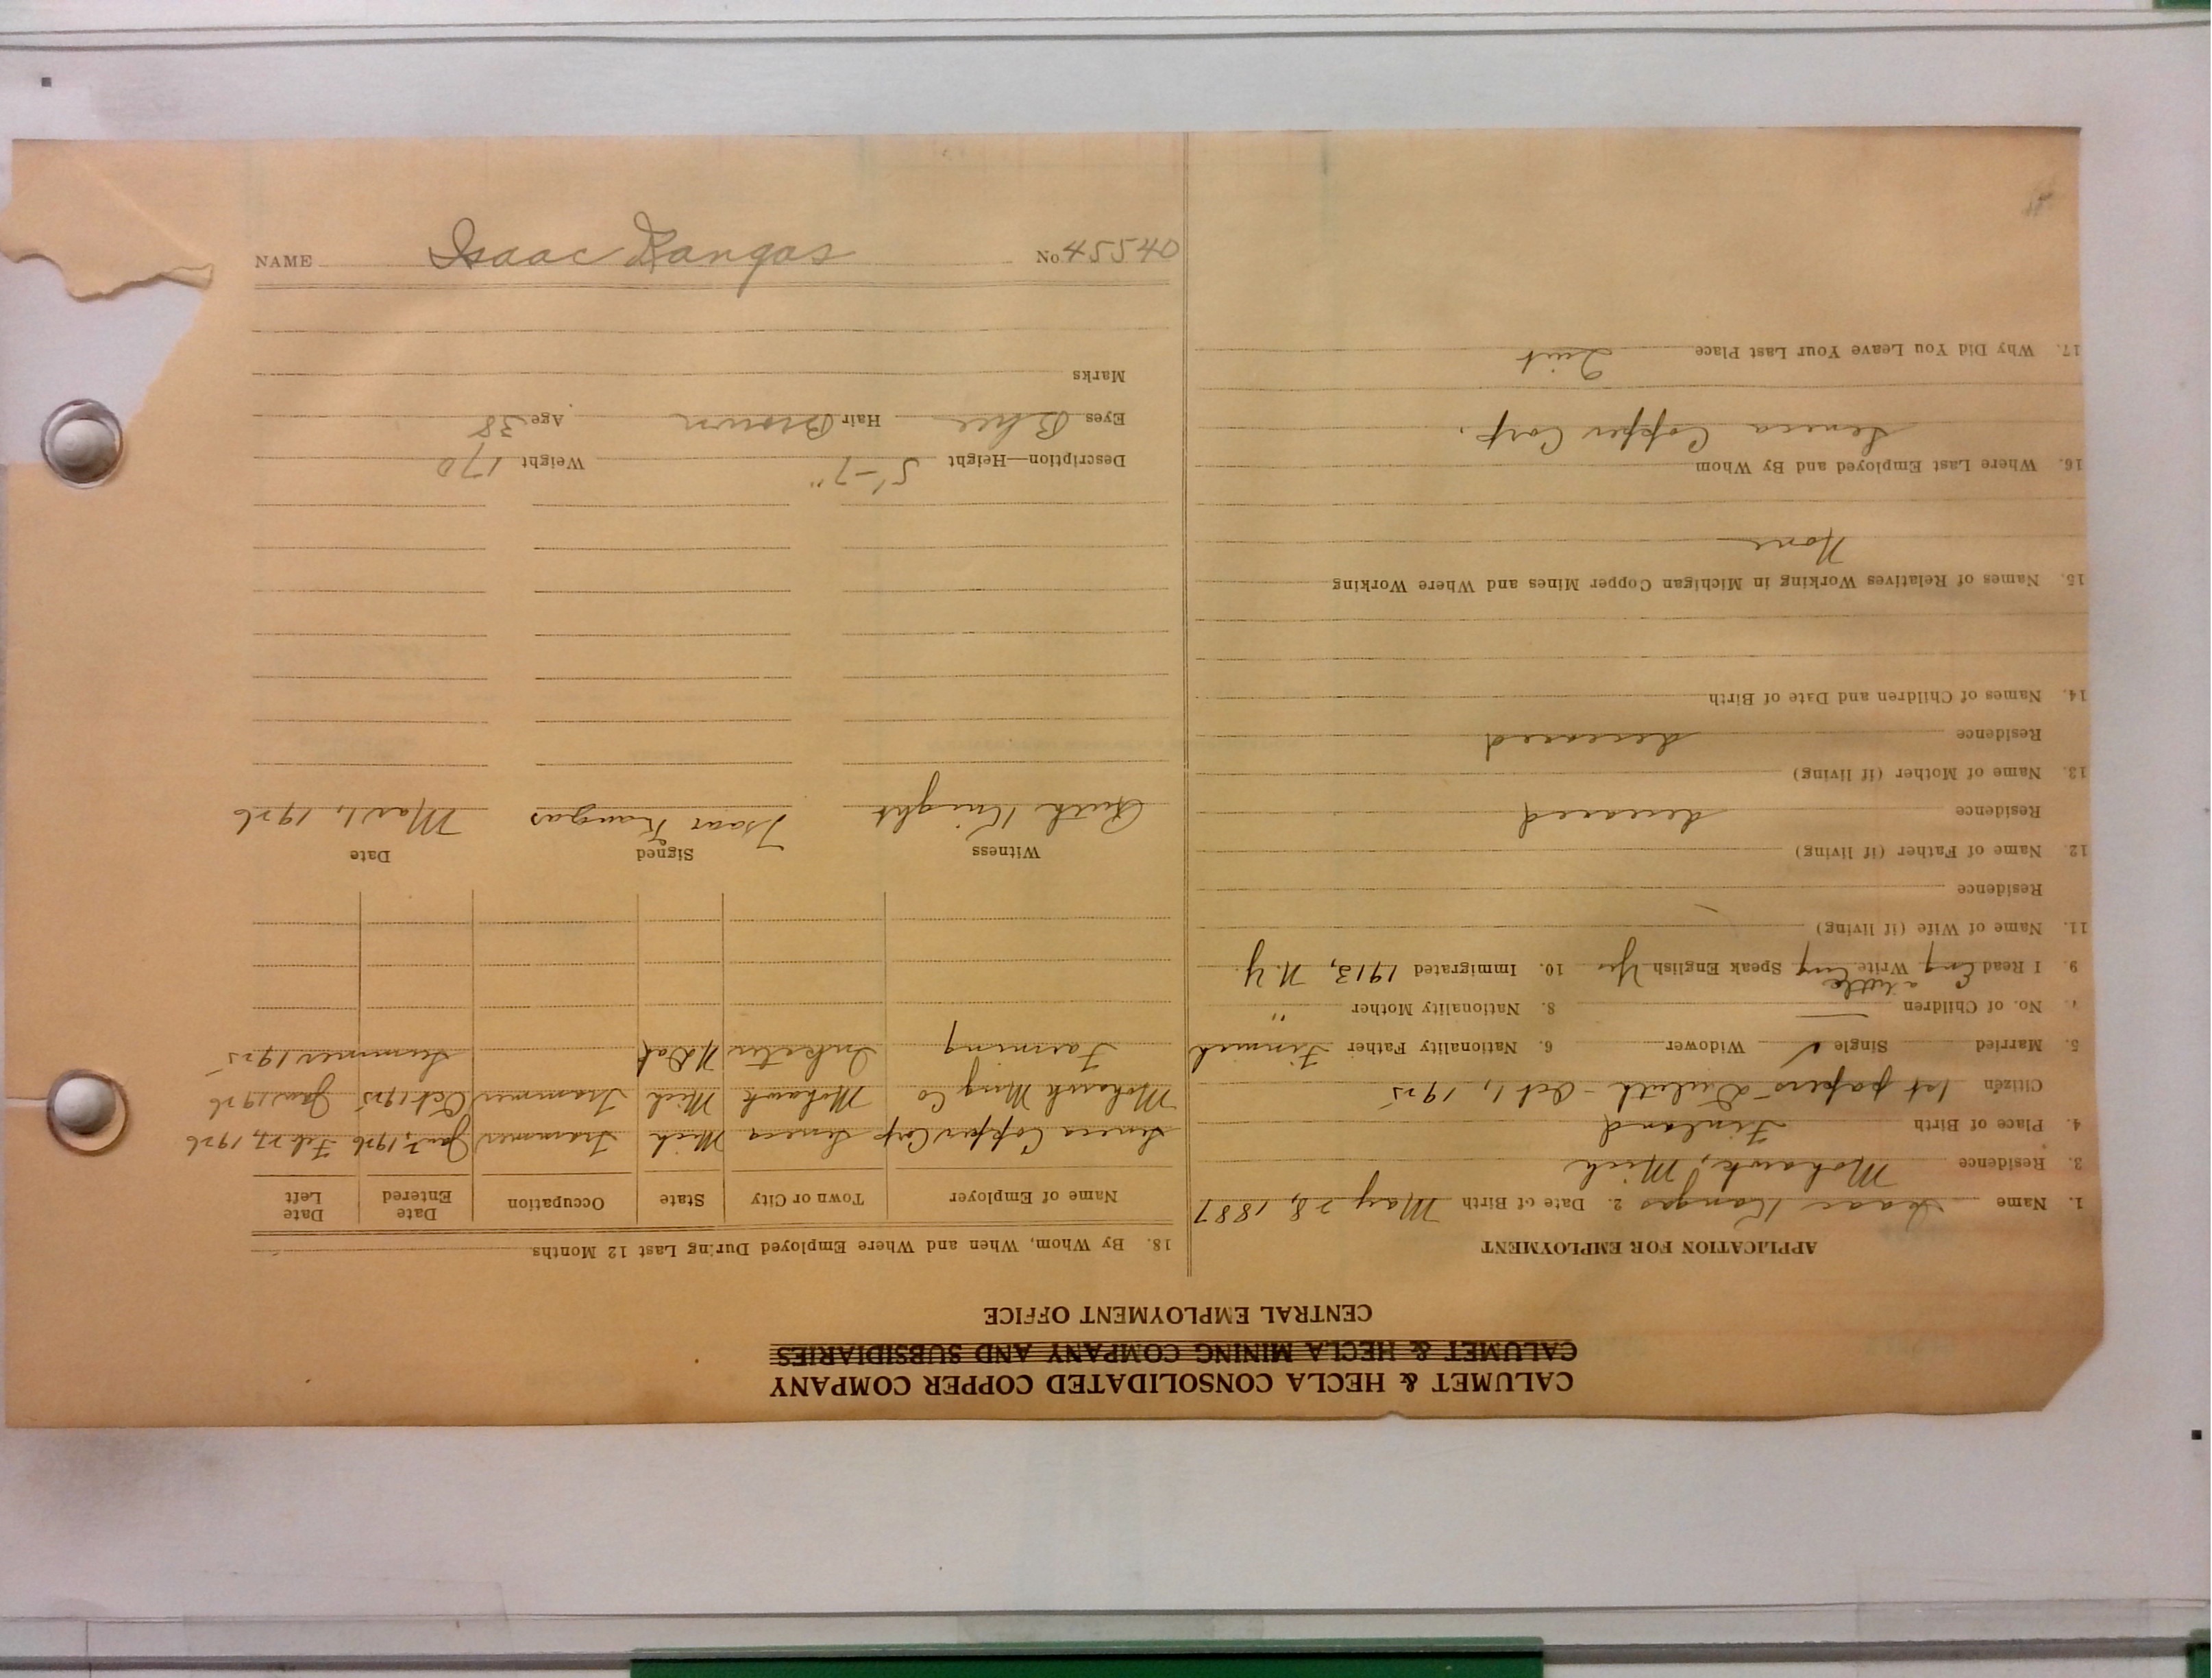 CALUMET & HECLA CONSOLIDATED COPPER COMPANY
CALUMET & HECLA MINING COMPANY AND SUBSIDIARIES
CENTRAL EMPLOYMENT OFFICE
APPLICATION FOR EMPLOYMENT
1. Name Isaac Kangas 2. Date of Birth May 28, 1887
3. Residence Mohawk, Mich
4. Place of Birth Finland
Citizen 1st papers - Duluth - Oct 1, 1925
5. Married Single ✓ Widower 6. Nationality Father Finnish
7. No. of Children — 8. Nationality Mother "
a little
9. I Read Eng Write Eng Speak English Yes 10. Immigrated 1913, N.Y.
11. Name of Wife (if living) —
Residence
12. Name of Father (if living)
Residence deceased
13. Name of Mother (if living)
Residence deceased
14. Names of Children and Date of Birth
15. Names of Relatives Working in Michigan Copper Mines and Where Working
None
16. Where Last Employed and By Whom
Seneca Copper Corp.
17. Why Did You Leave Your Last Place Quit
18. By Whom, When and Where Employed During Last 12 Months
Name of Employer Town or City State Occupation Date Entered Date Left
Seneca Copper Corp Seneca Mich Trammer Jan 1926 Feb 27, 1926
Mohawk Ming Co Mohawk Mich Trammer Oct 1925 Jan 1926
Farming Inkster N Dak Summer 1925
Witness Signed Date
Ruth Knight Isaac Kangas Mar 1, 1926
Description—Height 5'-7" Weight 170
Eyes Blue Hair Brown Age 38
Marks
NAME Isaac Kangas No 45540